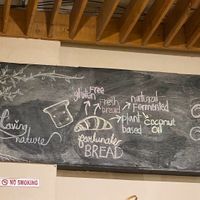 Loving
nature
gluten
FREE
Fresh
bread
natural
Fermented
plant
based
coconut
oil
fortunate
BREAD
NO SMOKING